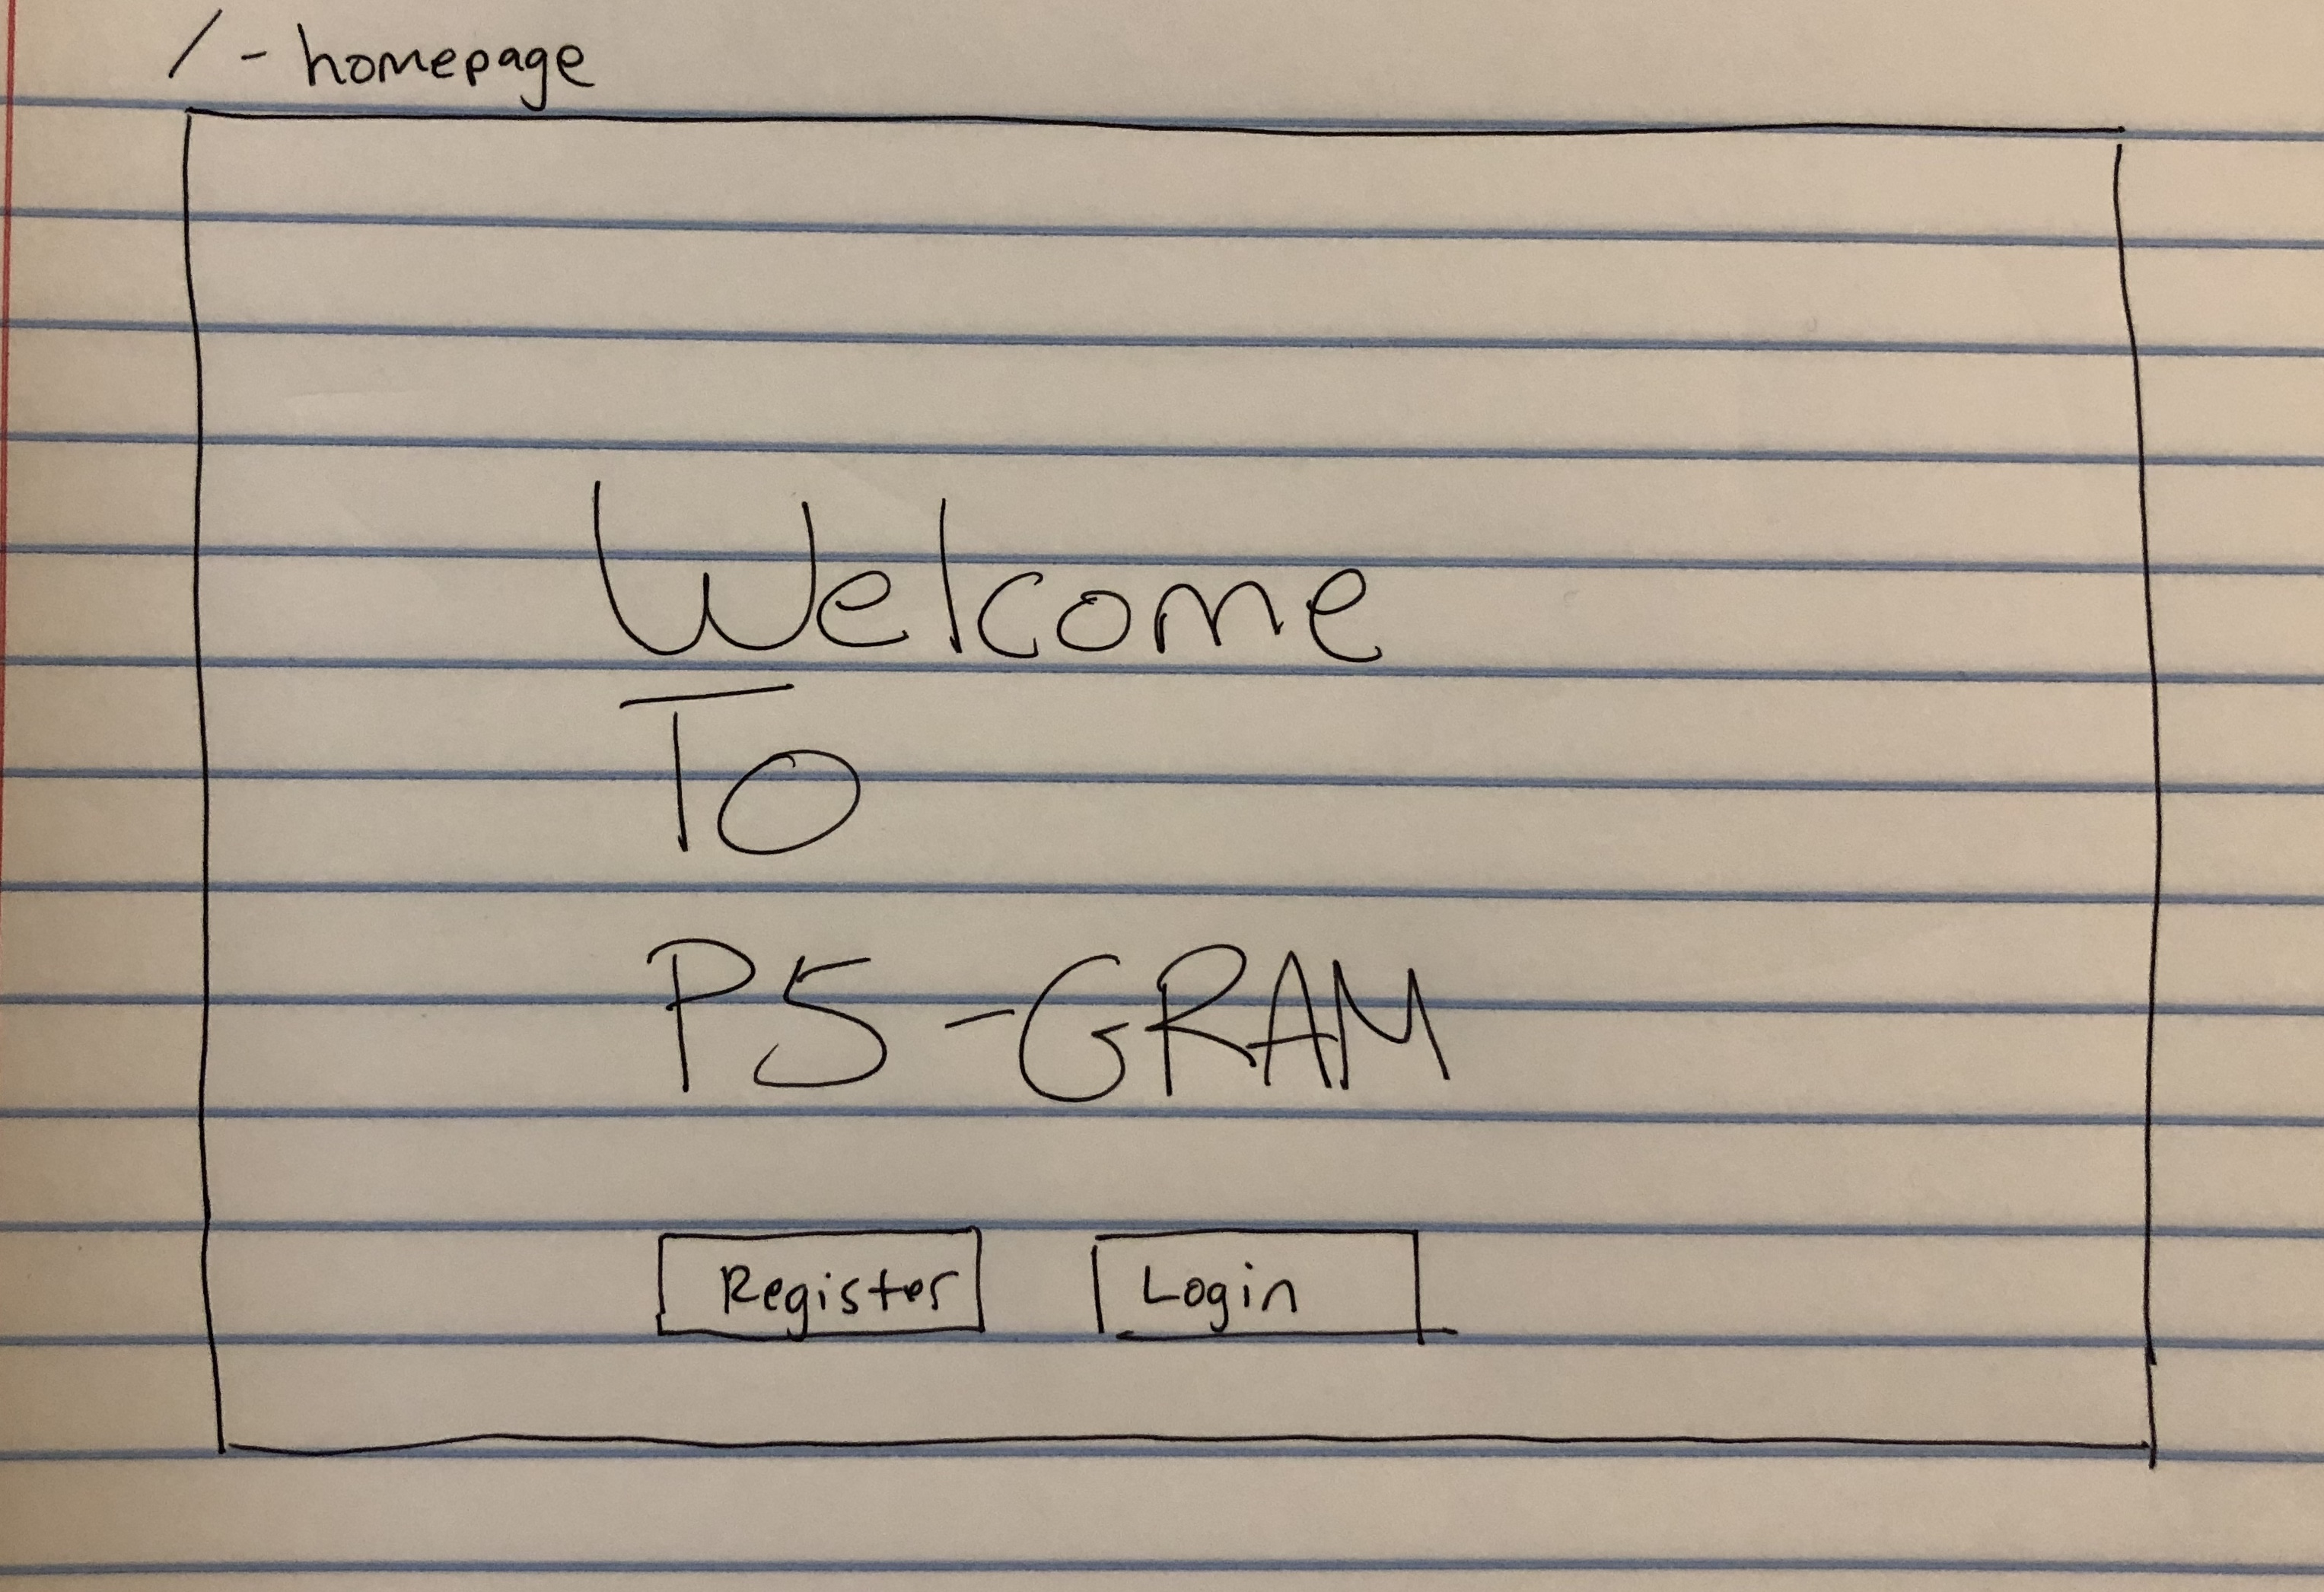 / - homepage
Welcome
To
P5-GRAM
Register Login